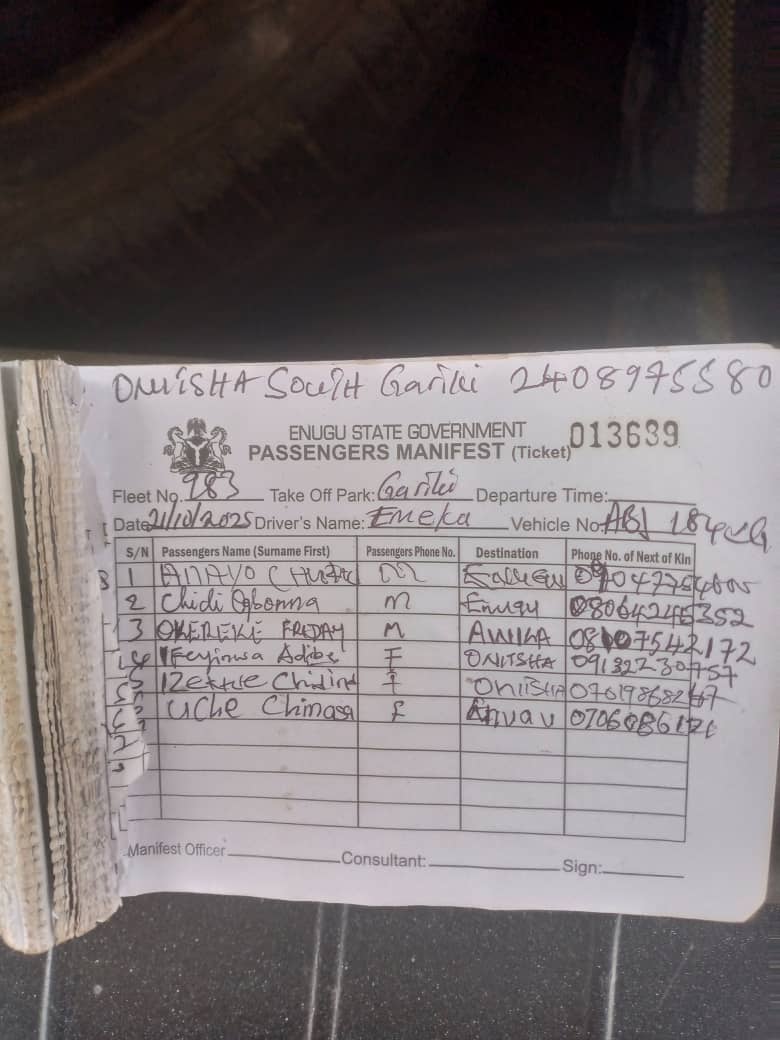 ONITSHA SOUTH Gariki 2408975580
ENUGU STATE GOVERNMENT
PASSENGERS MANIFEST (Ticket) 013639
Fleet No. 983 Take Off Park: Gariki Departure Time:
Date 21/10/2025 Driver's Name: Emeka Vehicle No: ABJ
S/N Passengers Name (Surname First) Passengers Phone No. Destination Phone No. of Next of Kin
1 ANAYO M
2 Chidi Ogbonna M Enugu 08064245352
3 OKEREKE FRIDAY M AWKA 08107542172
4 Ifeyinwa F ONITSHA 09132230757
F ONITSHA 07019868247
Uche Chinasa F
Manifest Officer Consultant: Sign: